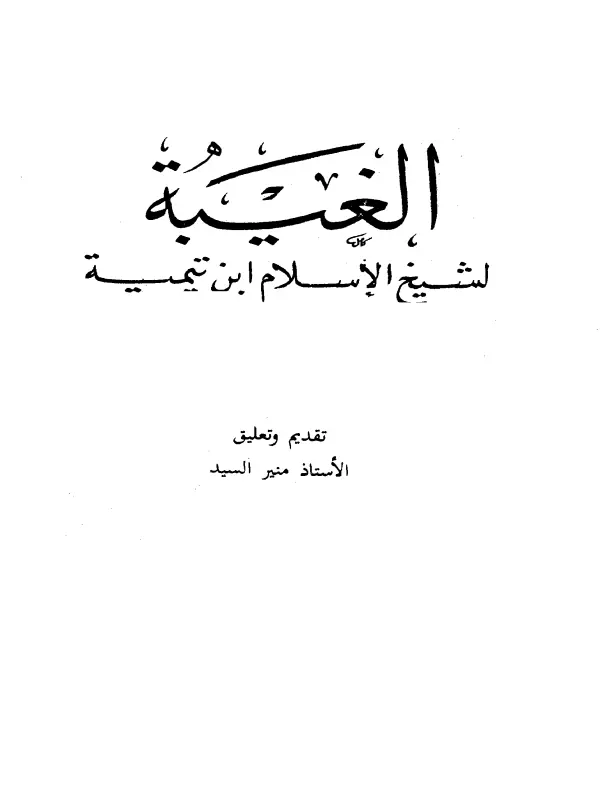 الغيبة
لشيخ الإسلام ابن تيمية
تقديم وتعليق
الأستاذ منير السيد